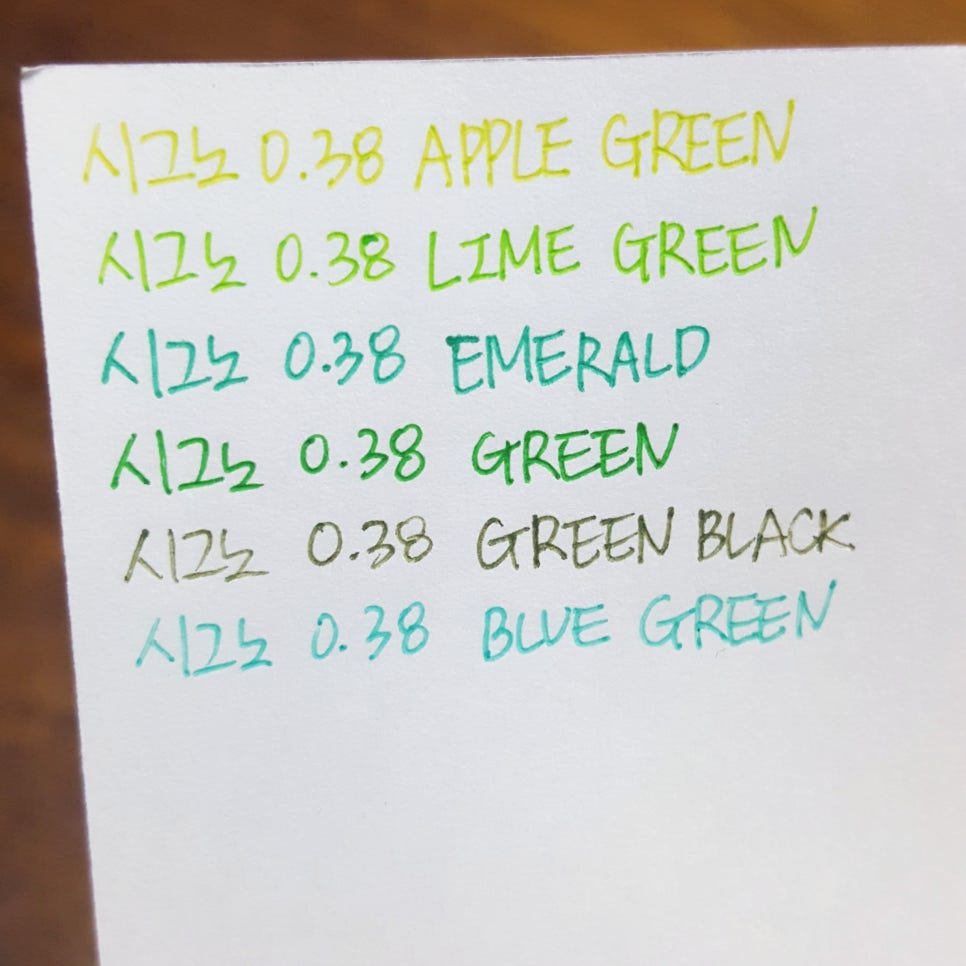 시그노 0.38 APPLE GREEN
시그노 0.38 LIME GREEN
시그노 0.38 EMERALD
시그노 0.38 GREEN
시그노 0.38 GREEN BLACK
시그노 0.38 BLUE GREEN